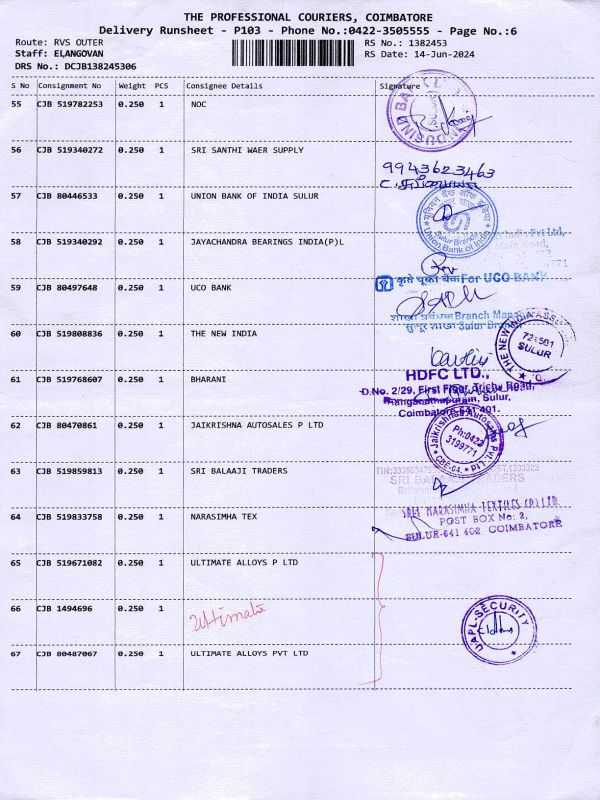 THE PROFESSIONAL COURIERS, COIMBATORE
Delivery Runsheet - P103 - Phone No.:0422-3505555 - Page No.:6
Route: RVS OUTER
RS No.: 1382453
Staff: ELANGOVAN
RS Date: 14-Jun-2024
DRS No.: DCJB138245306
S No Consignment No Weight PCS Consignee Details Signature
55 CJB 519782253 0.250 1 NOC
56 CJB 519340272 0.250 1 SRI SANTHI WAER SUPPLY
9943623463
57 CJB 80446533 0.250 1 UNION BANK OF INDIA SULUR
यूनियन बैंक ऑफ इंडिया
Sulur Branch
Union Bank of India
58 CJB 519340292 0.250 1 JAYACHANDRA BEARINGS INDIA(P)L
India Pvt Ltd.,
Main Road,
59 CJB 80497648 0.250 1 UCO BANK
कृते यूको बैंक For UCO BANK
शाखा प्रबंधक Branch Manager
सुलूर शाखा Sulur Branch
60 CJB 519808836 0.250 1 THE NEW INDIA
THE NEW INDIA ASSURANCE
SULUR
61 CJB 519768607 0.250 1 BHARANI
HDFC LTD.,
D.No. 2/29, First Floor, Trichy Road,
Ranganathapuram, Sulur,
Coimbatore-641 401.
62 CJB 80470861 0.250 1 JAIKRISHNA AUTOSALES P LTD
Jaikrishnaa Autosales Pvt. Ltd.
Ph:0422
3199771
CBE-04.
63 CJB 519859813 0.250 1 SRI BALAAJI TRADERS
SRI BALAAJI TRADERS
64 CJB 519833758 0.250 1 NARASIMHA TEX
SHREE NARASIMHA TEXTILES (P) LTD
POST BOX No: 2,
SULUR-641 402. COIMBATORE
65 CJB 519671082 0.250 1 ULTIMATE ALLOYS P LTD
66 CJB 1494696 0.250 1 Ultimate
UAPL-SECURITY
67 CJB 80487067 0.250 1 ULTIMATE ALLOYS PVT LTD